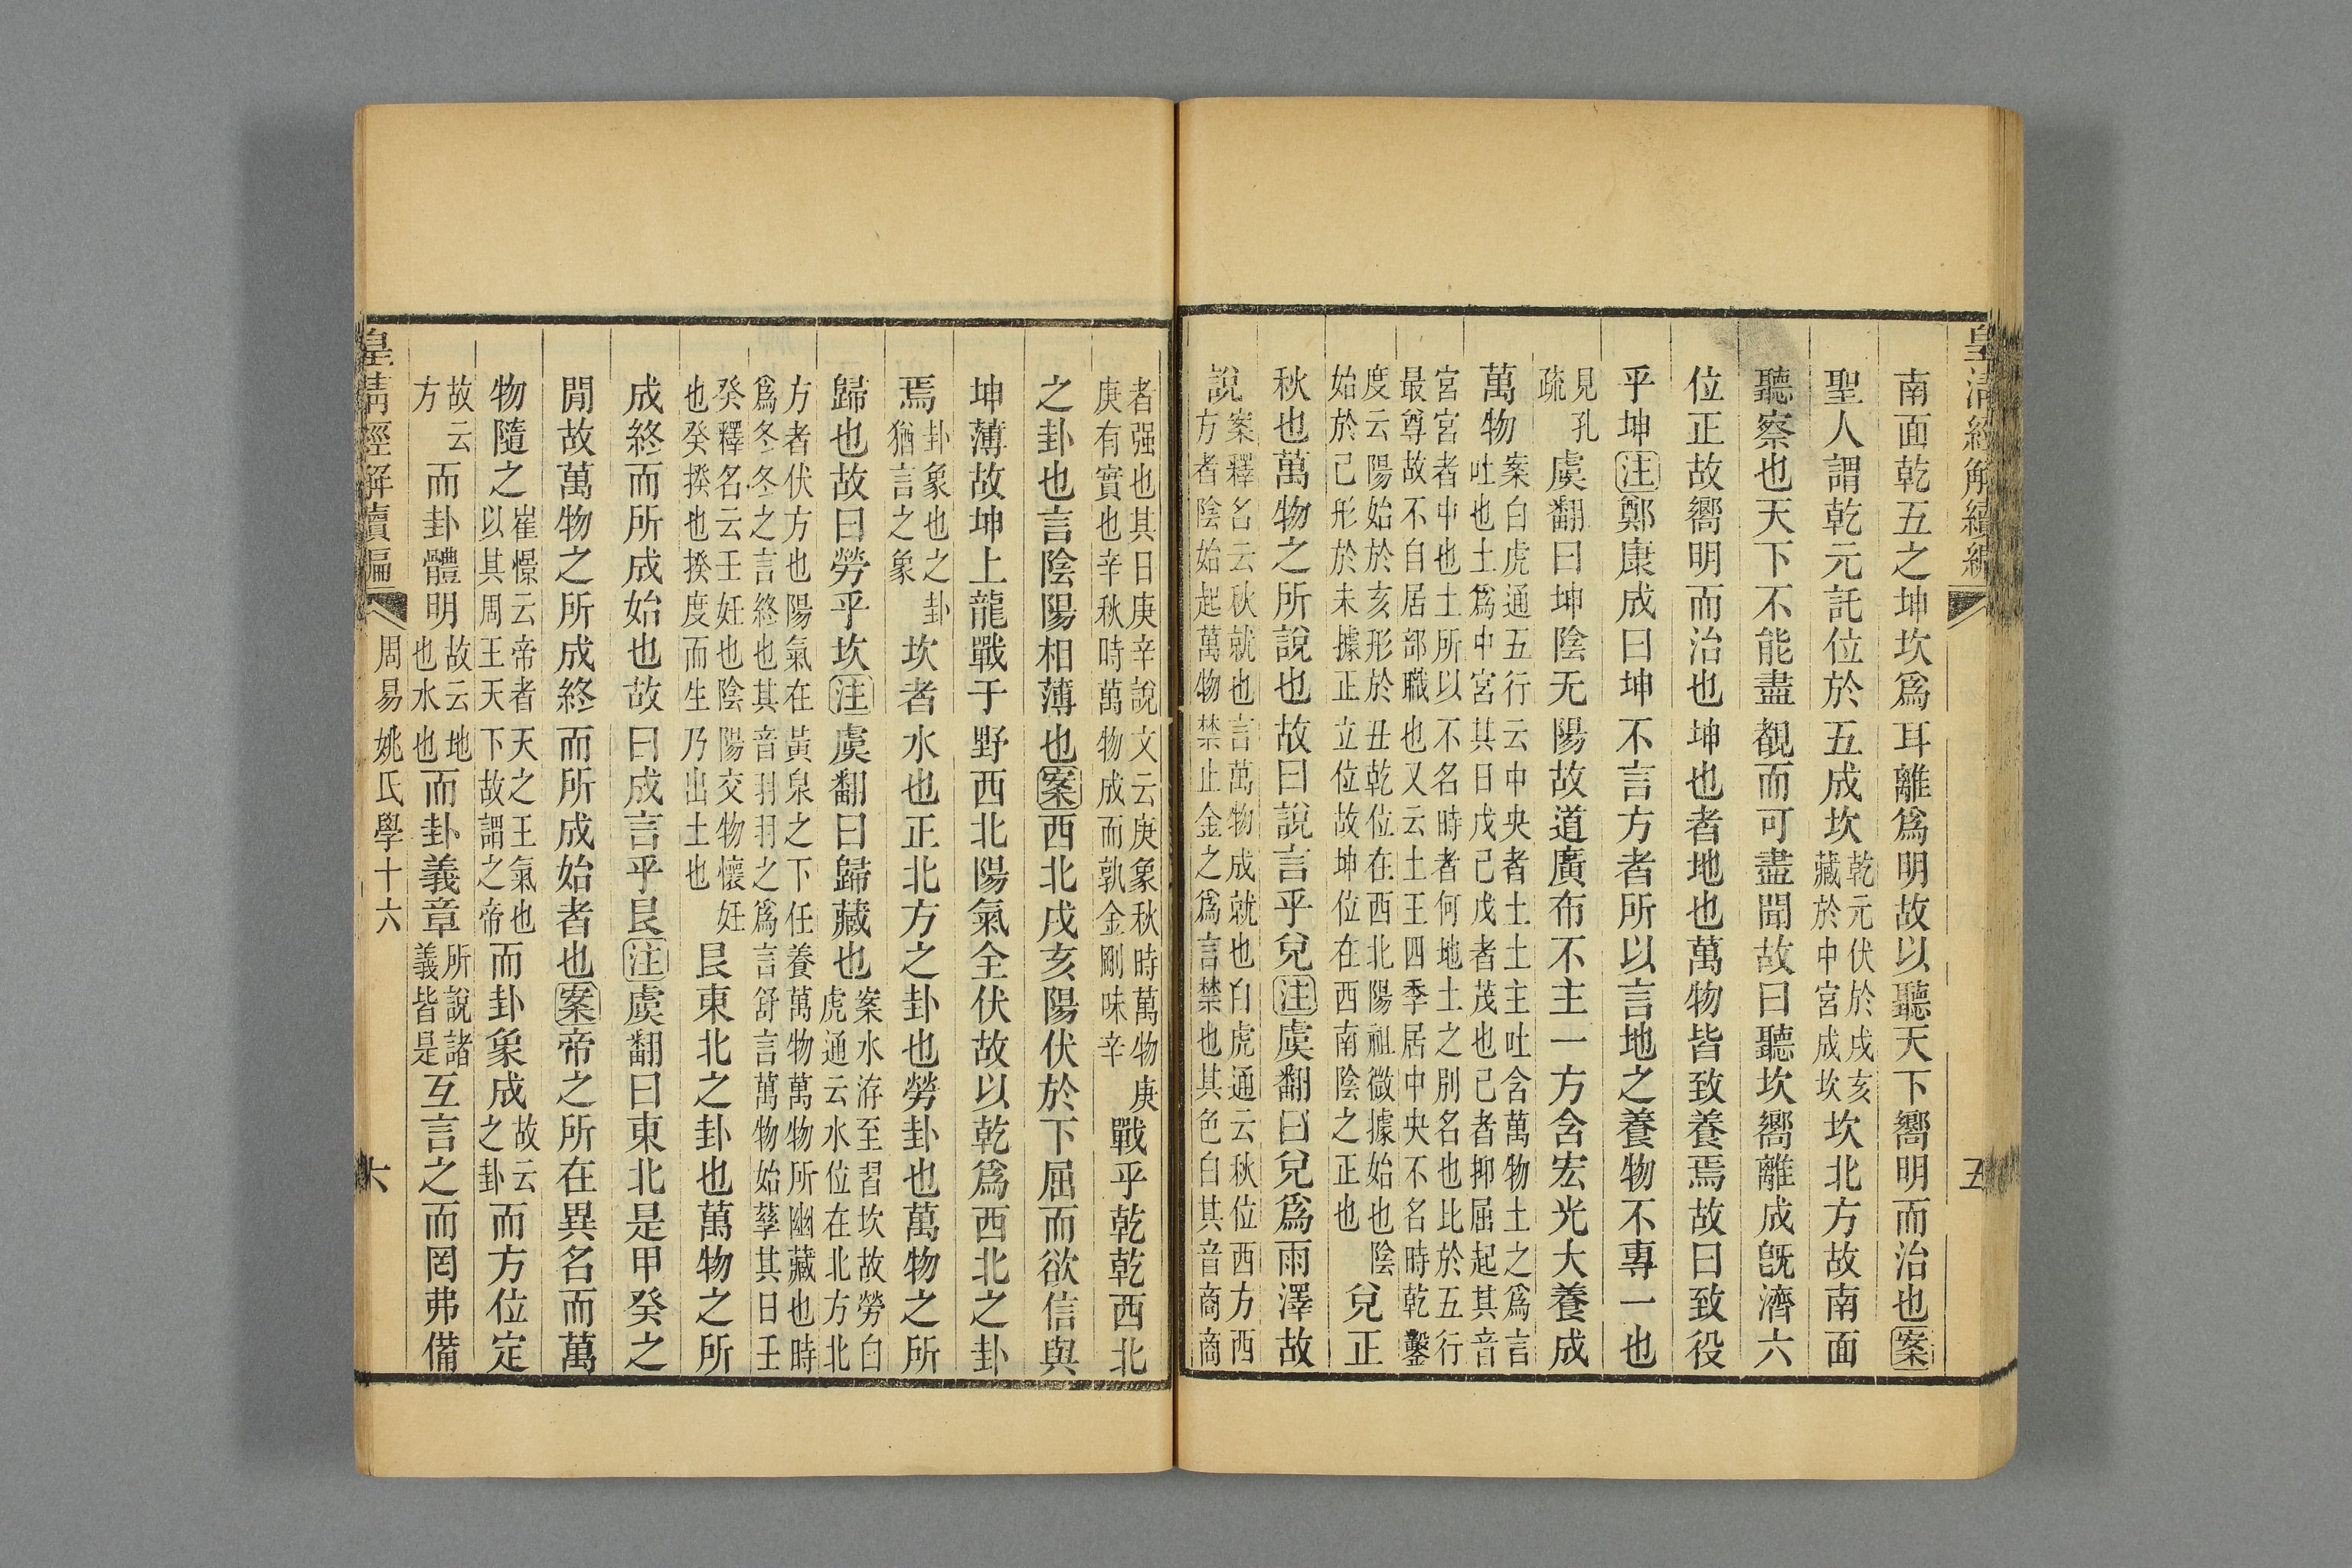 皇清經解續編 五
南面乾五之坤坎爲耳離爲明故以聽天下嚮明而治也案
聖人謂乾元託位於五成坎乾元伏於戌亥藏於中宮成坎坎北方故南面
聽察也天下不能盡覩而可盡聞故曰聽坎嚮離成旣濟六
位正故嚮明而治也坤也者地也萬物皆致養焉故曰致役
乎坤注鄭康成曰坤不言方者所以言地之養物不專一也
見孔疏虞翻曰坤陰无陽故道廣布不主一方含宏光大養成
萬物案白虎通五行云中央者土土主吐含萬物土之爲言吐也土爲中宮其日戊己戊者茂也己者抑屈起其音
宮宮者中也土所以不名時者何地土之別名也比於五行最尊故不自居部職也又云土王四季居中央不名時乾鑿
度云陽始於亥形於丑乾位在西北陽祖微據始也陰始於巳形於未據正立位故坤位在西南陰之正也兌正
秋也萬物之所說也故曰說言乎兌注虞翻曰兌爲雨澤故
說案釋名云秋就也言萬物成就也白虎通云秋位西方西方者陰始起萬物禁止金之爲言禁也其色白其音商商
者强也其日庚辛說文云庚象秋時萬物庚庚有實也辛秋時萬物成而孰金剛味辛戰乎乾乾西北
之卦也言陰陽相薄也案西北戌亥陽伏於下屈而欲信與
坤薄故坤上龍戰于野西北陽氣全伏故以乾爲西北之卦
焉卦象也之卦猶言之象坎者水也正北方之卦也勞卦也萬物之所
歸也故曰勞乎坎注虞翻曰歸藏也案水洊至習坎故勞白虎通云水位在北方北
方者伏方也陽氣在黃泉之下任養萬物萬物所幽藏也時爲冬冬之言終也其音羽羽之爲言舒言萬物始孳其日壬
癸釋名云壬妊也陰陽交物懷妊也癸揆也揆度而生乃出土也艮東北之卦也萬物之所
成終而所成始也故曰成言乎艮注虞翻曰東北是甲癸之
閒故萬物之所成終而所成始者也案帝之所在異名而萬
物隨之崔憬云帝者天之王氣也以其周王天下故謂之帝而卦象成故云之卦而方位定
故云方而卦體明故云地也水也而卦義章所說諸義皆是互言之而罔弗備
皇清經解續編 周易姚氏學十六 六